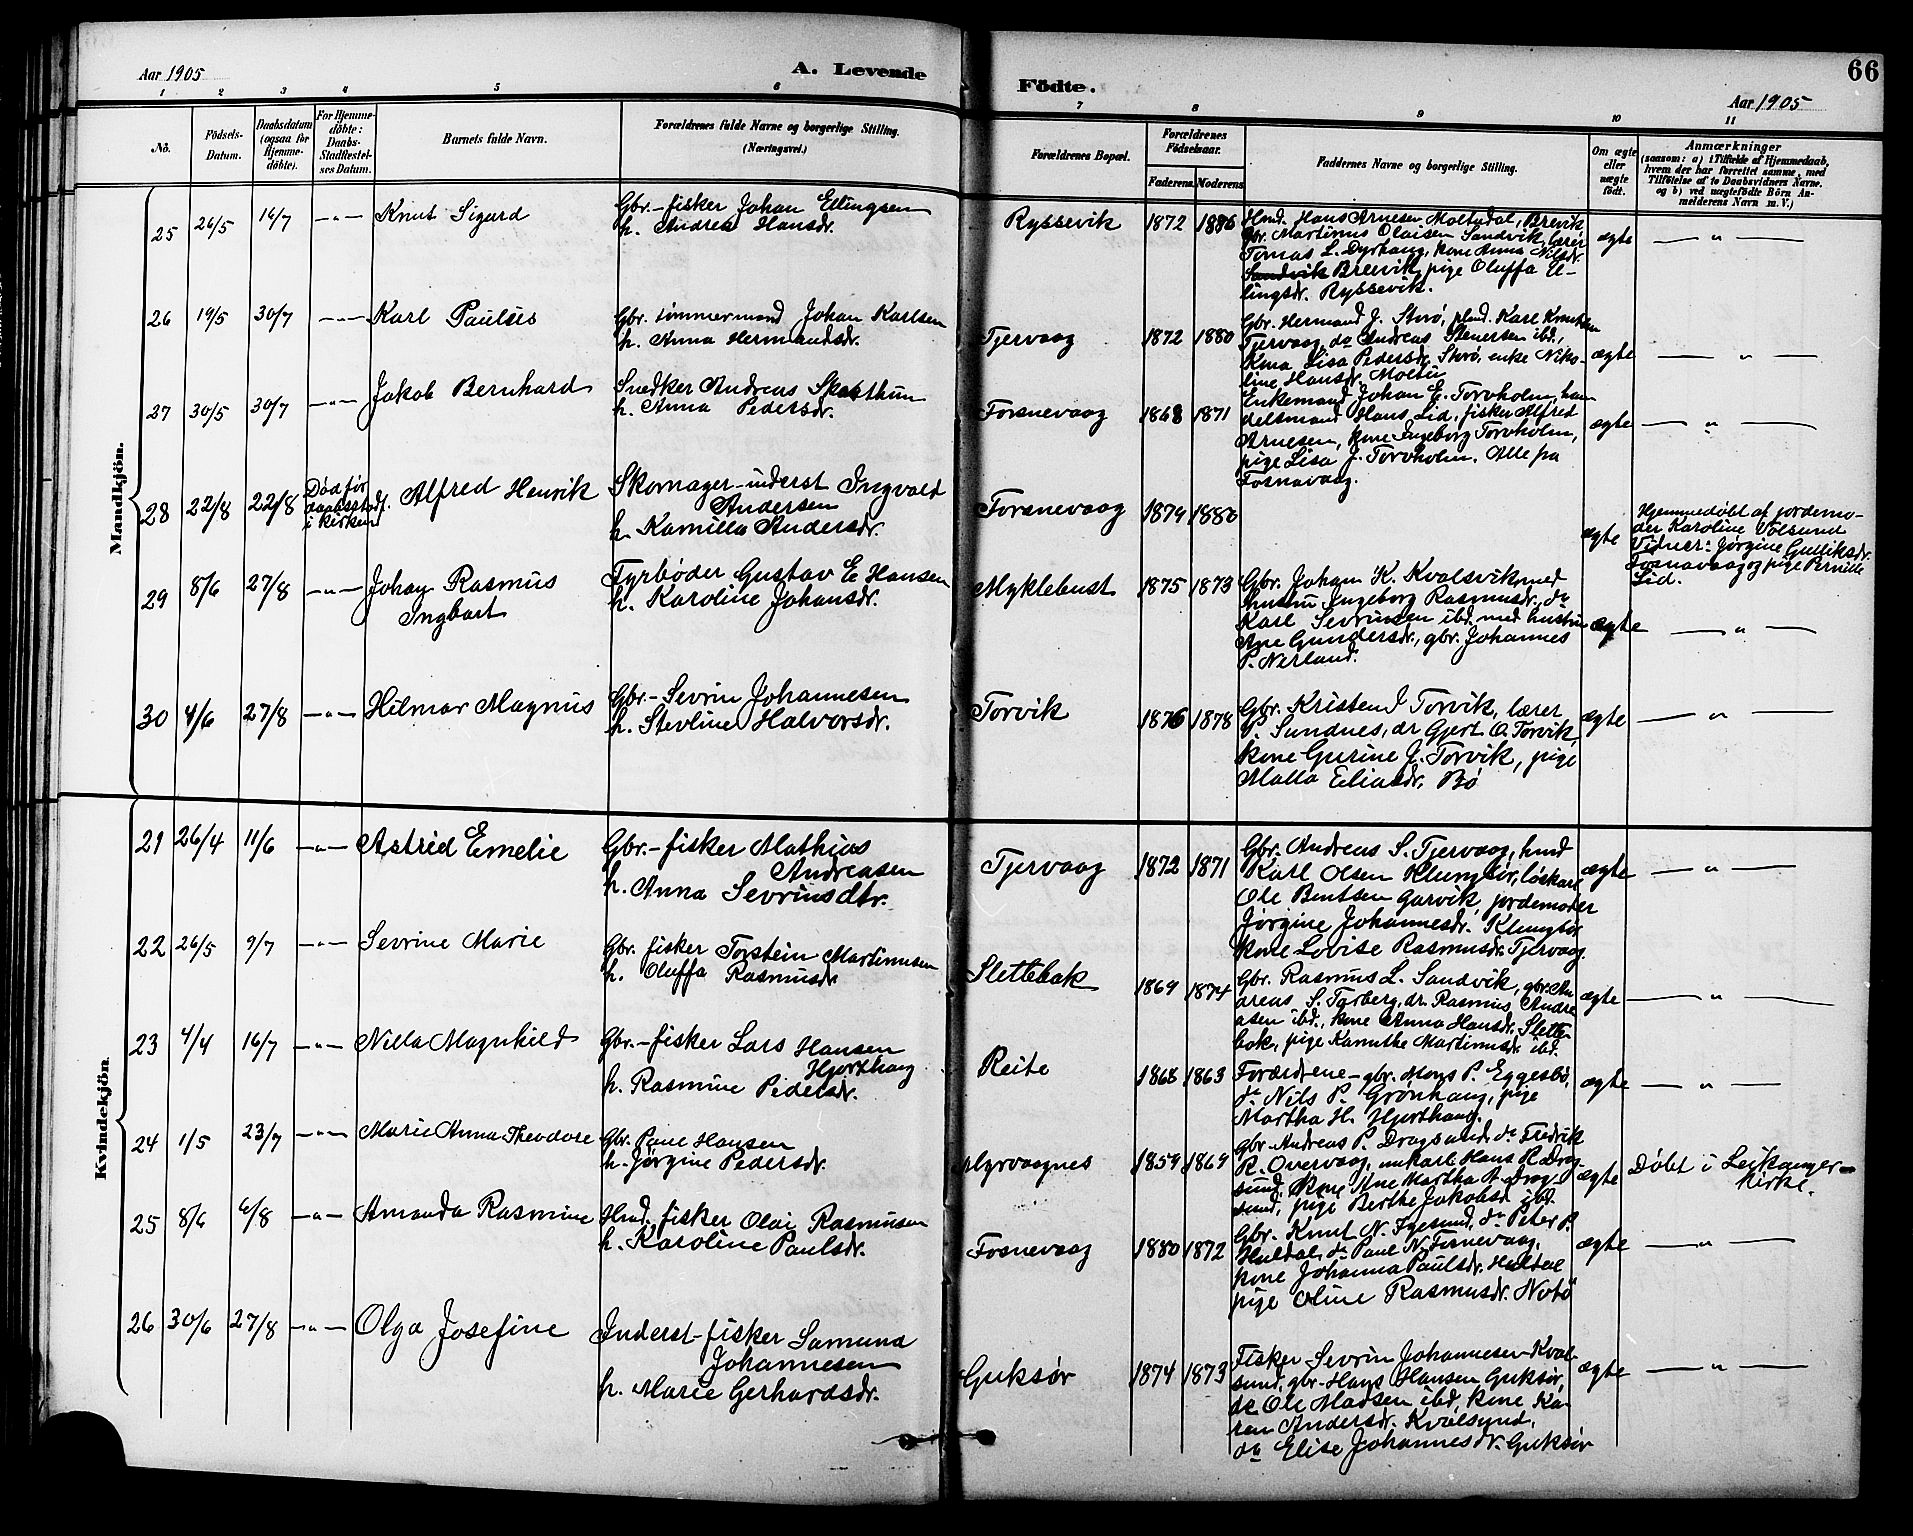 Aar 1905
A. Levende
Födte.
66
Aar 1905
1 2 3 4 5 6 7 8 9 10 11
No.
Födsels-
Datum.
Daabsdatum
(ogsaa for
Hjemme-
döbte).
For Hjemme-
döbte:
Daabs-
Stadfæstel-
ses Datum.
Barnets fulde Navn.
Forældrenes fulde Navne og borgerlige Stilling.
(Næringsvei.)
Forældrenes Bopæl.
Forældrenes
Födselsaar.
Faderens. Moderens.
Faddernes Navne og borgerlige Stilling.
Om ægte
eller
uægte
födt.
Anmærkninger
(saasom: a) i Tilfælde af Hjemmedaab,
hvem der har forrettet samme, med
Tilföielse af to Daabsvidners Navne.
og b) ved uægtefödte Börn An-
melderens Navn m. V.)
Mandkjön.
25 26/5 16/7 -"- Knut Sigurd
Gbr.-fisker Johan Ellingsen
h. Andrea Hansdr.
Ryssevik 1872 1886
Hmd. Hans Arnesen Moltudal, Brevik,
gbr. Martinus Olaisen Sandvik, lærer
Tomas L. Dyrhaug, kone Anna Nilsdr.
Sandvik Breivik, pige Oluffa El-
lingsdr. Ryssevik.
ægte - " -
26 19/5 30/7 -"- Karl Paulus
Gbr. tömmermand Johan Karlsen
h. Anna Hermandsdr.
Tjervaag 1872 1880
Gbr. Hermand J. Storø, plmd. Karl Knutsen
Tjervaag, do Andreas Stenersen ibd.,
Kma Lisa Pedersdr. Storø, enke Niko-
line Hansdr. Moltu
ægte - " -
27 30/5 30/7 -"- Jakob Bernhard
Snedker Andreas Skotthun
h. Anna Pedersdr.
Forsnevaag 1868 1871
Enkemand Johan E. Torvholm, han
delsmand Hans Lid, fisker Alfred
Arnesen, kone Ingeborg Torvholm,
pige Lisa J. Torvholm. Alle fra
Fosnavaag.
ægte - " -
28 22/8 22/8 Død før
daabsstadf.
i kirken
Alfred Henrik
Skomager-inderst Ingvald
Andersen
h. Kamilla Andersdr.
Forsnevaag 1879 1880
ægte
Hjemmedøbt af jordemo-
der Karoline Volsund
Vidner: Jørgine Gulliksdr.
Fosnavaag og pige Pernille
Lid.
29 8/6 27/8 -"- Johan Rasmus
Ingbart
Fyrbøder Gustav E Hansen
h. Karoline Johansdr.
Myklebust 1875 1873
Gbr. Johan K. Kvalsvik med
hustru Ingeborg Rasmusdr. do
Karl Sevrinsen ibd. med hustru
Ane Gundersdr., gbr. Johannes
P. Nerland.
ægte - " -
30 4/6 27/8 -"- Hilmar Magnus
Gbr.-Sevrin Johannesen
h. Stevline Halvorsdr.
Torvik 1876 1878
Gbr. Kristen J Torvik, lærer
P. Sundnes, dr Gjert O. Torvik,
kone Gurine J. Torvik, pige
Malla Eliasdr. Bø
ægte - " -
Kvindekjön
21 26/4 11/6 -"- Astrid Emelie
Gbr.-fisker Mathias
Andreasen
h. Anna Sevrinsdtr.
Tjervaag 1872 1871
Gbr. Andreas S. Tjervaag, hmd
Karl Olsen Klungsör, löskarl
Ole Bentsen Garvik, jordemoder
Jørgine Johannesdr. Klungsör
kone Lovise Rasmusdr. Tjervaag.
ægte - " -
22 26/5 9/7 -"- Sevrine Marie
Gbr. fisker Torstein Martinusen
h. Oluffa Rasmusdr.
Slettebak 1869 1874
Gbr. Rasmus L. Sandvik, gbr. An
dreas S. Tarberg, dr. Rasmus Andre
asen ibd., kone Anna Hansdr. Slette
bak, pige Kamitke Martinusdr. ibd.
ægte - " -
23 4/4 16/7 -"- Nilla Magnhild
Gbr.-fisker Lars Hansen
Hjorthaug
h. Rasmine Pedersdr.
Reite 1868 1863
Forældrene-gbr. Mons P. Eggesbö,
do Nils P. Grönhaug, pige
Martha H. Hjorthaug.
ægte - " -
24 1/5 23/7 -"- Marie Anna Theodore
Gbr. Paul Hansen
h. Jørgine Pedersdr.
Myrvaagnes 1859 1869
gbr. Andreas P. Dragsund, do Fredrik
R. Overvaag, unkarl Hans R. Drag-
sund, kone Ane Martha A. Drag-
sund, pige Berthe Jakobsd. ibd.
ægte
Døbt i Leikanger-
kirke.
25 8/6 6/8 -"- Amanda Rasmine
Hmd. fisker Olai Rasmusen
h. Karoline Paulsdr.
Fosnevaag 1880 1872
Gbr. Knut N. Igesund, do Peter P.
Huldal, do Paul N. Fosnevaag,
kone Johanna Paulsdr. Huldal
pige Oline Rasmusdr. Notö
ægte - " -
26 30/6 27/8 -"- Olga Josefine
Inderst-fisker Samund
Johannesen
h. Marie Gerhardsdr.
Guksør 1874 1873
Fisker Sevrin Johannesen Kval-
sund, gbr-Hans Hansen Guksør,
do Ole Madsen ibd, kone Ka-
ren Andersdr. Kvalsund,
do Elise Johannesdr. Guksør
ægte - " -